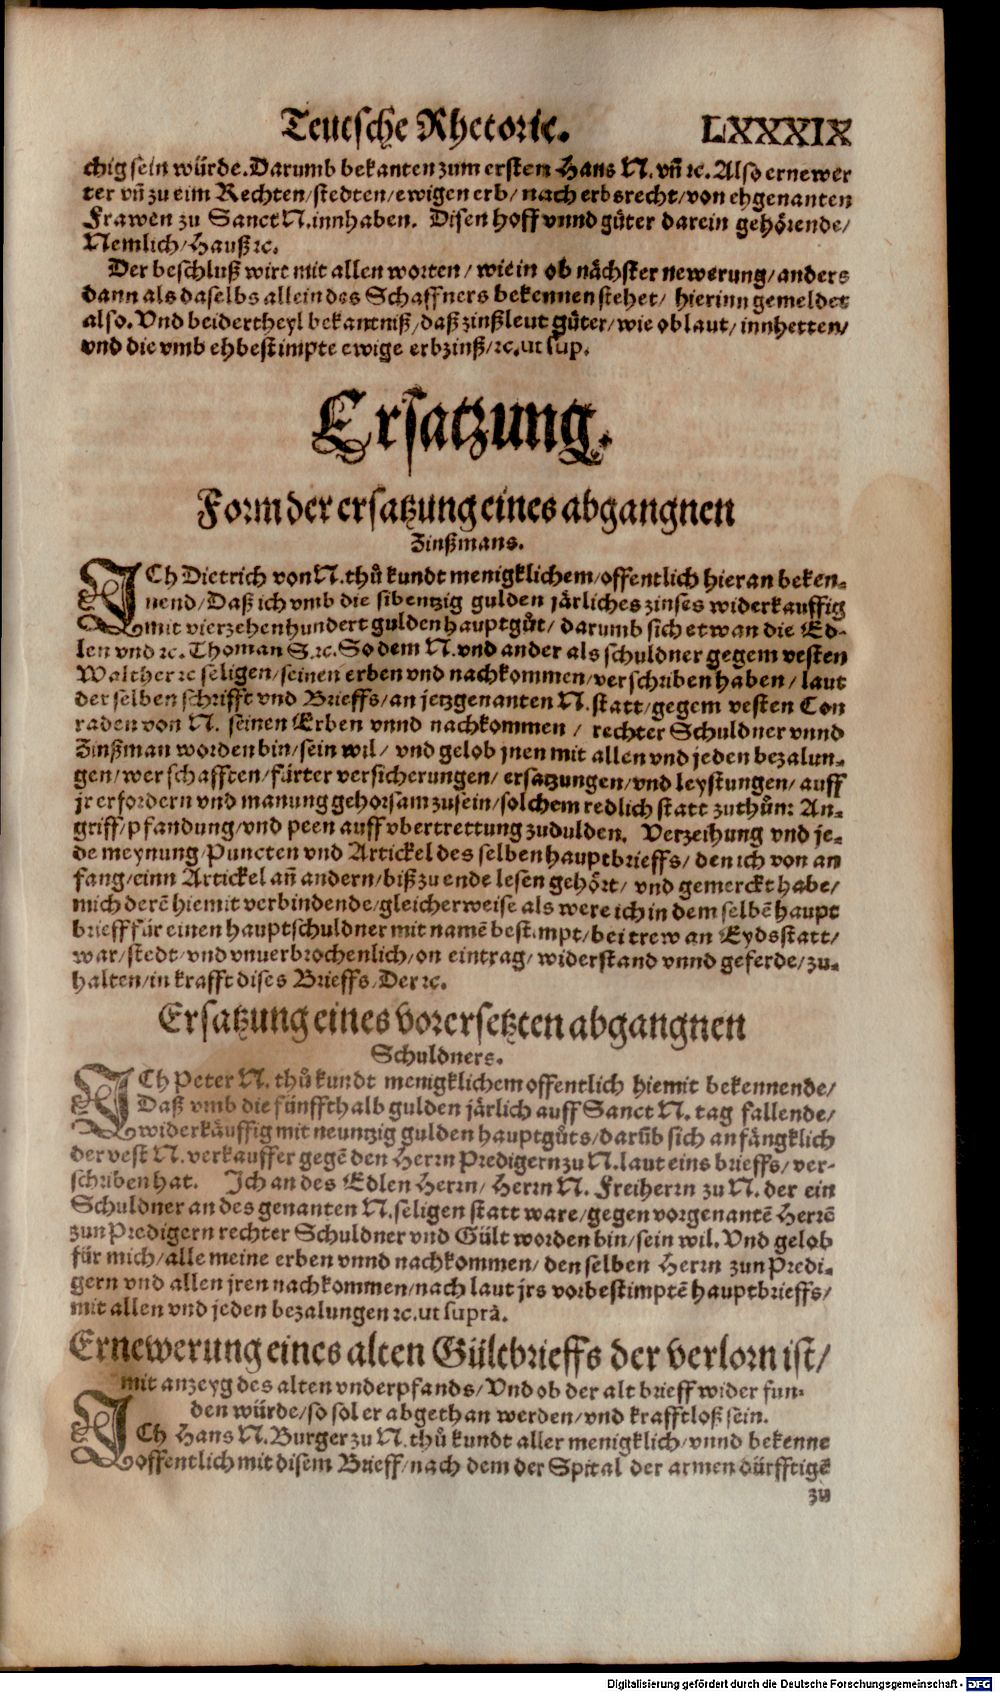 Teutsche Rhetoric. LXXXIX
chig sein würde. Darumb bekanten zum ersten Hans N. vñ ꝛc. Also ernewer
ter vñ zu eim Rechten/ stedten/ ewigen erb/ nach erbsrecht/ von ehgenanten
Frawen zu Sanct N. innhaben. Disen hoff vnnd güter darein gehörende/
Nemlich/ Hauß ꝛc.
Der beschluß wirt mit allen worten/ wie in ob nächster newerung/ anders
dann als daselbs allein des Schaffners bekennen stehet/ hierinn gemeldet
also. Vnd beidertheyl bekantniß/ daß zinßleut güter/ wie oblaut/ innhetten/
vnd die vmb ehbestimpte ewige erbzinß/ ꝛc. ut sup.
Ersatzung.
Form der ersatzung eines abgangnen
Zinßmans.
ICh Dietrich von N. thů kundt menigklichem/ offentlich hieran beken-
nend/ Daß ich vmb die sibentzig gulden järliches zinses widerkauffig
mit vierzehenhundert gulden hauptgůt/ darumb sich etwan die Ed-
len vnd ꝛc. Thoman S. ꝛc. So dem N. vnd ander als schuldner gegem vesten
Walther ꝛc seligen/ seinen erben vnd nachkommen/ verschriben haben/ laut
der selben schrifft vnd Brieffs/ an jetzgenanten N. statt/ gegem vesten Con
raden von N. seinen Erben vnnd nachkommen/ rechter Schuldner vnnd
Zinßman worden bin/ sein wil/ vnd gelob jnen mit allen vnd jeden bezalun-
gen/ werschafften/ fürter versicherungen/ ersatzungen/ vnd leystungen/ auff
jr erfordern vnd manung gehorsam zusein/ solchem redlich statt zuthůn: An-
griff/ pfandung/ vnd peen auff vbertrettung zudulden. Verzeihung vnd je-
de meynung/ Puncten vnd Artickel des selben hauptbrieffs/ den ich von an
fang/ einn Artickel añ andern/ biß zu ende lesen gehört/ vnd gemerckt habe/
mich derē hiemit verbindende/ gleicherweise als were ich in dem selbē haupt
brieff für einen hauptschuldner mit namē bestimpt/ bei trew an Eydsstatt/
war/ stedt/ vnd vnuerbrochenlich/ on eintrag/ widerstand vnnd geferde/ zu-
halten/ in krafft dises Brieffs/ Der ꝛc.
Ersatzung eines vorersetzten abgangnen
Schuldners.
ICh Peter N. thů kundt menigklichem offentlich hiemit bekennende/
Daß vmb die fünffthalb gulden järlich auff Sanct N. tag fallende/
widerkäuffig mit neuntzig gulden hauptgůts/ darūb sich anfängklich
der vest N. verkauffer gegē den Herrn Predigern zu N. laut eins brieffs/ ver-
schriben hat. Ich an des Edlen Herrn/ Herrn N. Freiherrn zu N. der ein
Schuldner an des genanten N. seligen statt ware/ gegen vorgenantē Herrē
zun Predigern rechter Schuldner vnd Gült worden bin/ sein wil. Vnd gelob
für mich/ alle meine erben vnnd nachkommen/ den selben Herrn zun Predi-
gern vnd allen jren nachkommen/ nach laut jrs vorbestimptē hauptbrieffs/
mit allen vnd jeden bezalungen ꝛc. ut suprà.
Ernewerung eines alten Gültbrieffs der verlorn ist/
mit anzeyg des alten vnderpfands/ Vnd ob der alt brieff wider fun-
den würde/ so sol er abgethan werden/ vnd krafftloß sein.
ICh Hans N. Burger zu N. thů kundt aller menigklich/ vnnd bekenne
offentlich mit disem Brieff/ nach dem der Spital der armen dürfftigē
zu
Digitalisierung gefördert durch die Deutsche Forschungsgemeinschaft - DFG